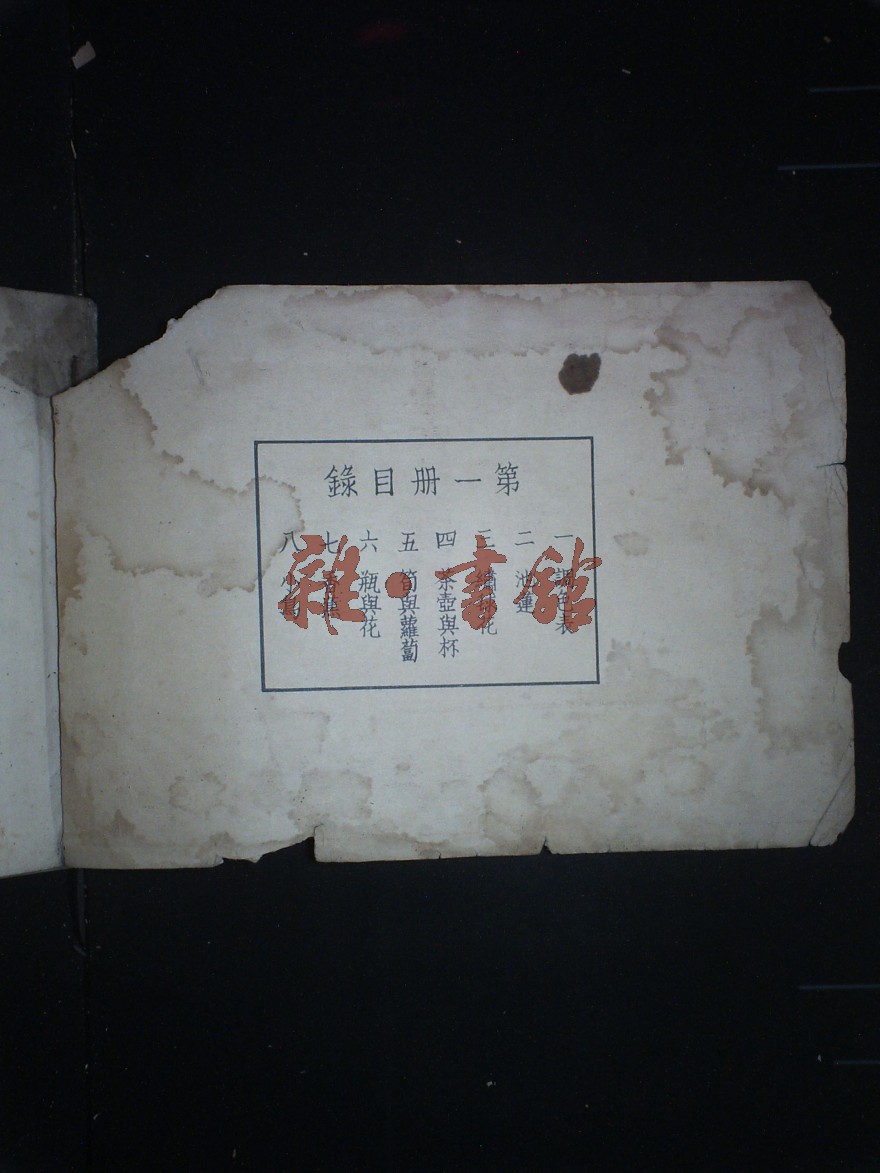 第一册目錄
一 調色表
二 池蓮
三 繡球花
四 茶壺與杯
五 筍與蘿蔔
六 瓶與花
七 香蕉
八 小鳥
雜·書館